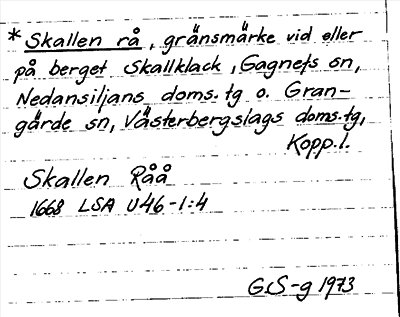 * Skallen rå, gränsmärke vid eller
på berget Skallklack, Gagnefs sn,
Nedansiljans doms.tg o. Gran-
gärde sn, Västerbergslags doms.tg,
Kopp.l.
Skallen Råå
1668 LSA U46-1:4
G.S-g 1973